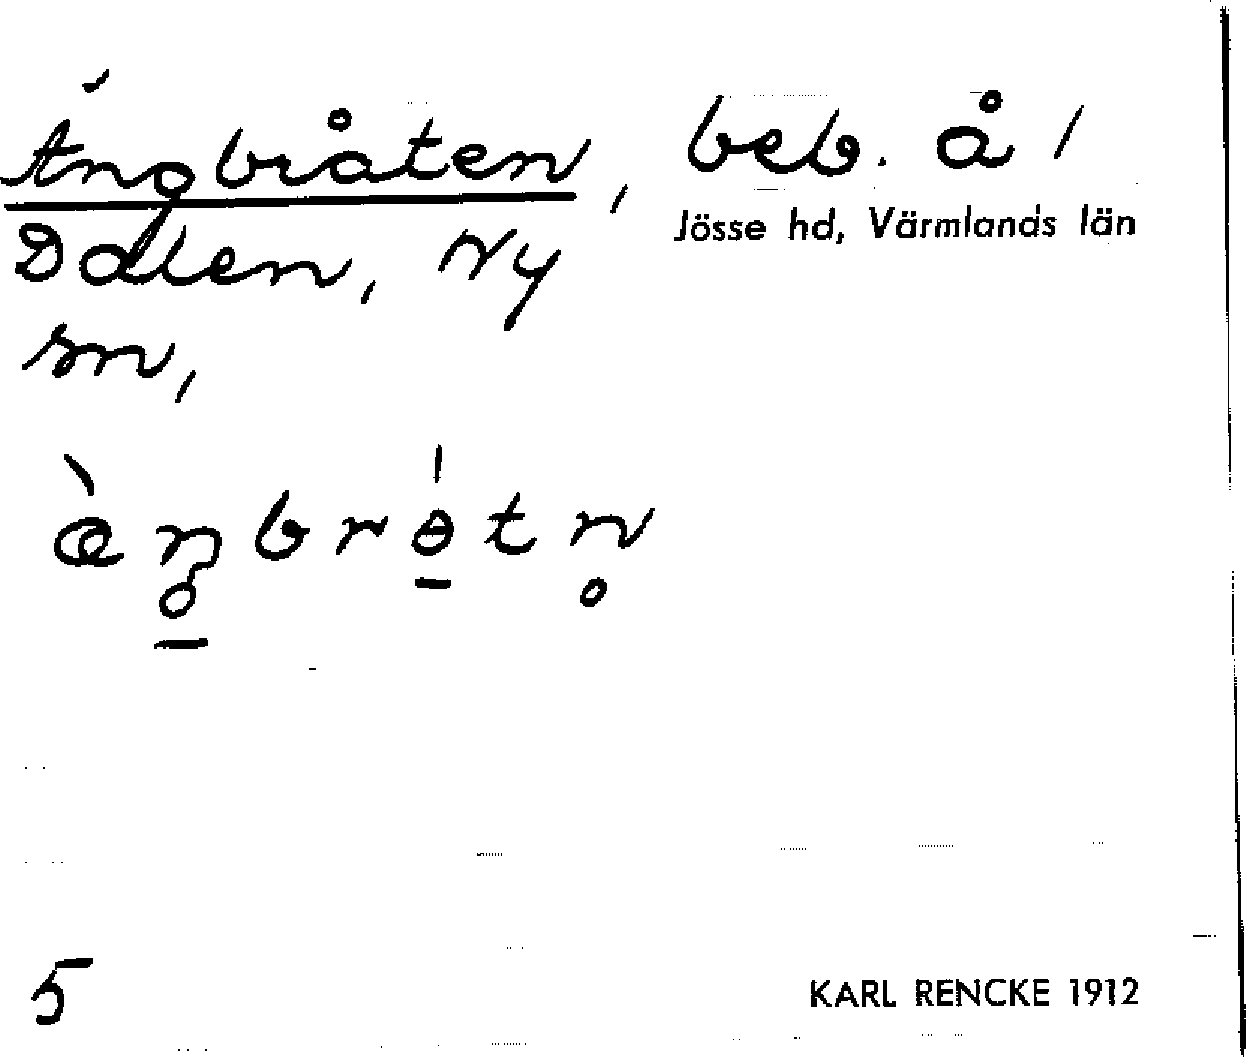 Ängbråten, beb. å /
Jösse hd, Värmlands län
Dalen, Ny
sn,
æ̀ŋbrɵ̠́tn̥
5
KARL RENCKE 1912